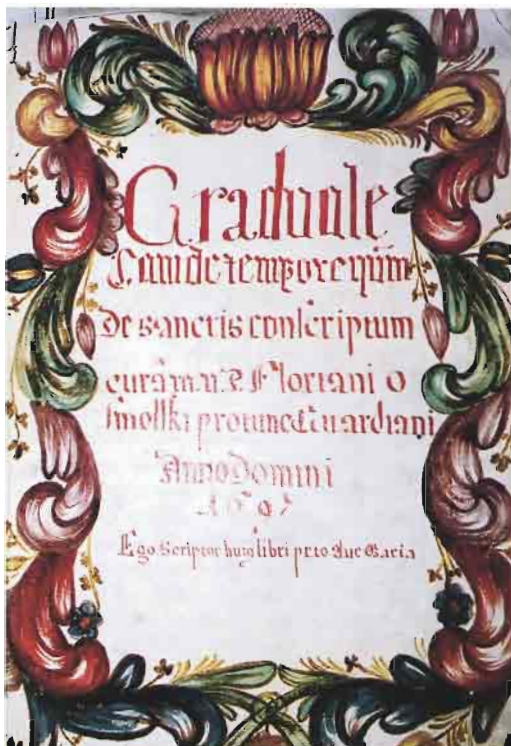 Graduale
tam de tempore quam
de sanctis conscriptum
cura Floriani O
smolski protunc Guardiani
Anno Domini
Ego Scriptor huiꝰ libri peto Aue Maria